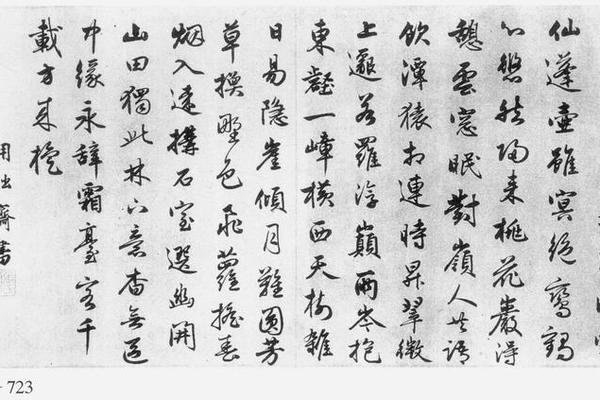 仙蓬壺雖冥絕鸞鶴
心悠然歸來桃花巖得
憩雲窓眠對嶺人共語
飲潭猿相連時昇翠微
上邈若羅浮巔兩岑抱
東壑一嶂橫西天樹雜
日易隱崖傾月難圓芳
草換野色飛蘿搖春
烟入遠搆石室選幽開
山田獨此林下意杳無區
中緣永辭霜臺客千
載方來旋
齋書
723